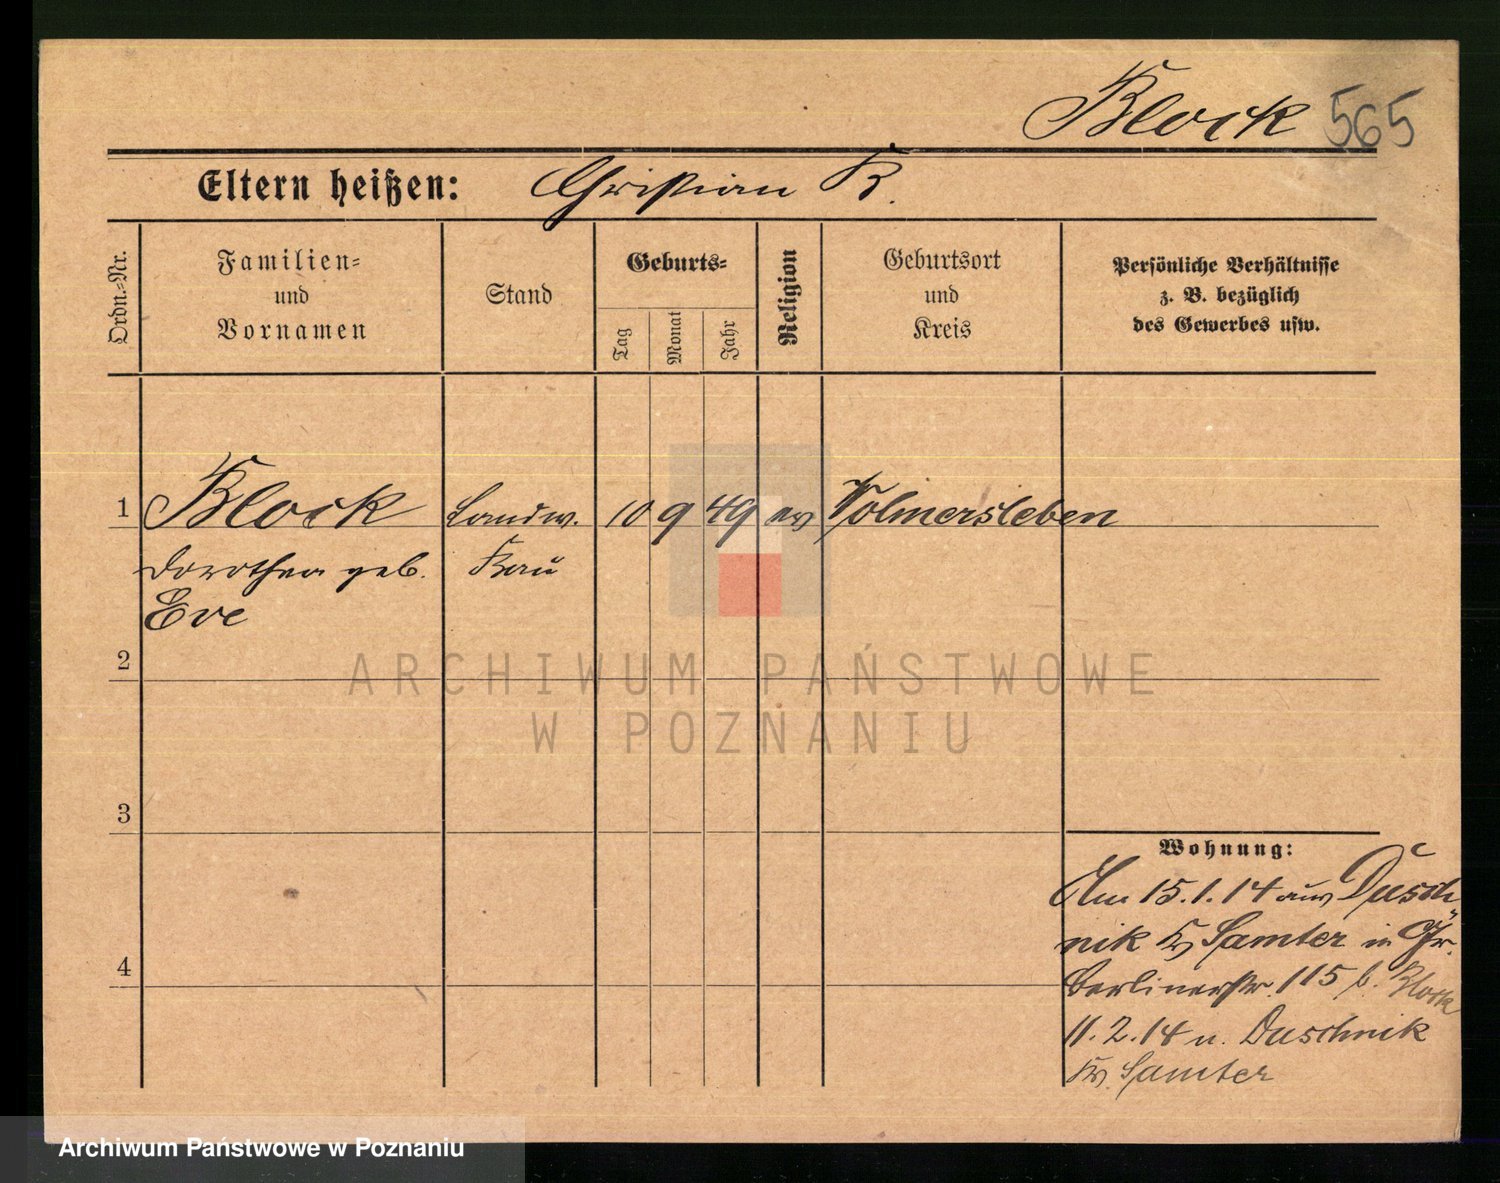 Block 565
Eltern heißen: Christian B.
Ordn.-Nr.
Familien-
und
Vornamen
Stand
Geburts-
Tag
Monat
Jahr
Religion
Geburtsort
und
Kreis
Persönliche Verhältnisse
z. B. bezüglich
des Gewerbes usw.
1 Block Landw. 10 9 49 ev Volmersleben
Dorothea geb. Frau
Eve
2
ARCHIWUM PAŃSTWOWE
W POZNANIU
3
Wohnung:
Am 15.1.14 aus Dusch
nik Kr Samter in Gr.
4
Berlinerstr. 115 b. Block
11.2.14 n. Duschnik
Kr. Samter
Archiwum Państwowe w Poznaniu